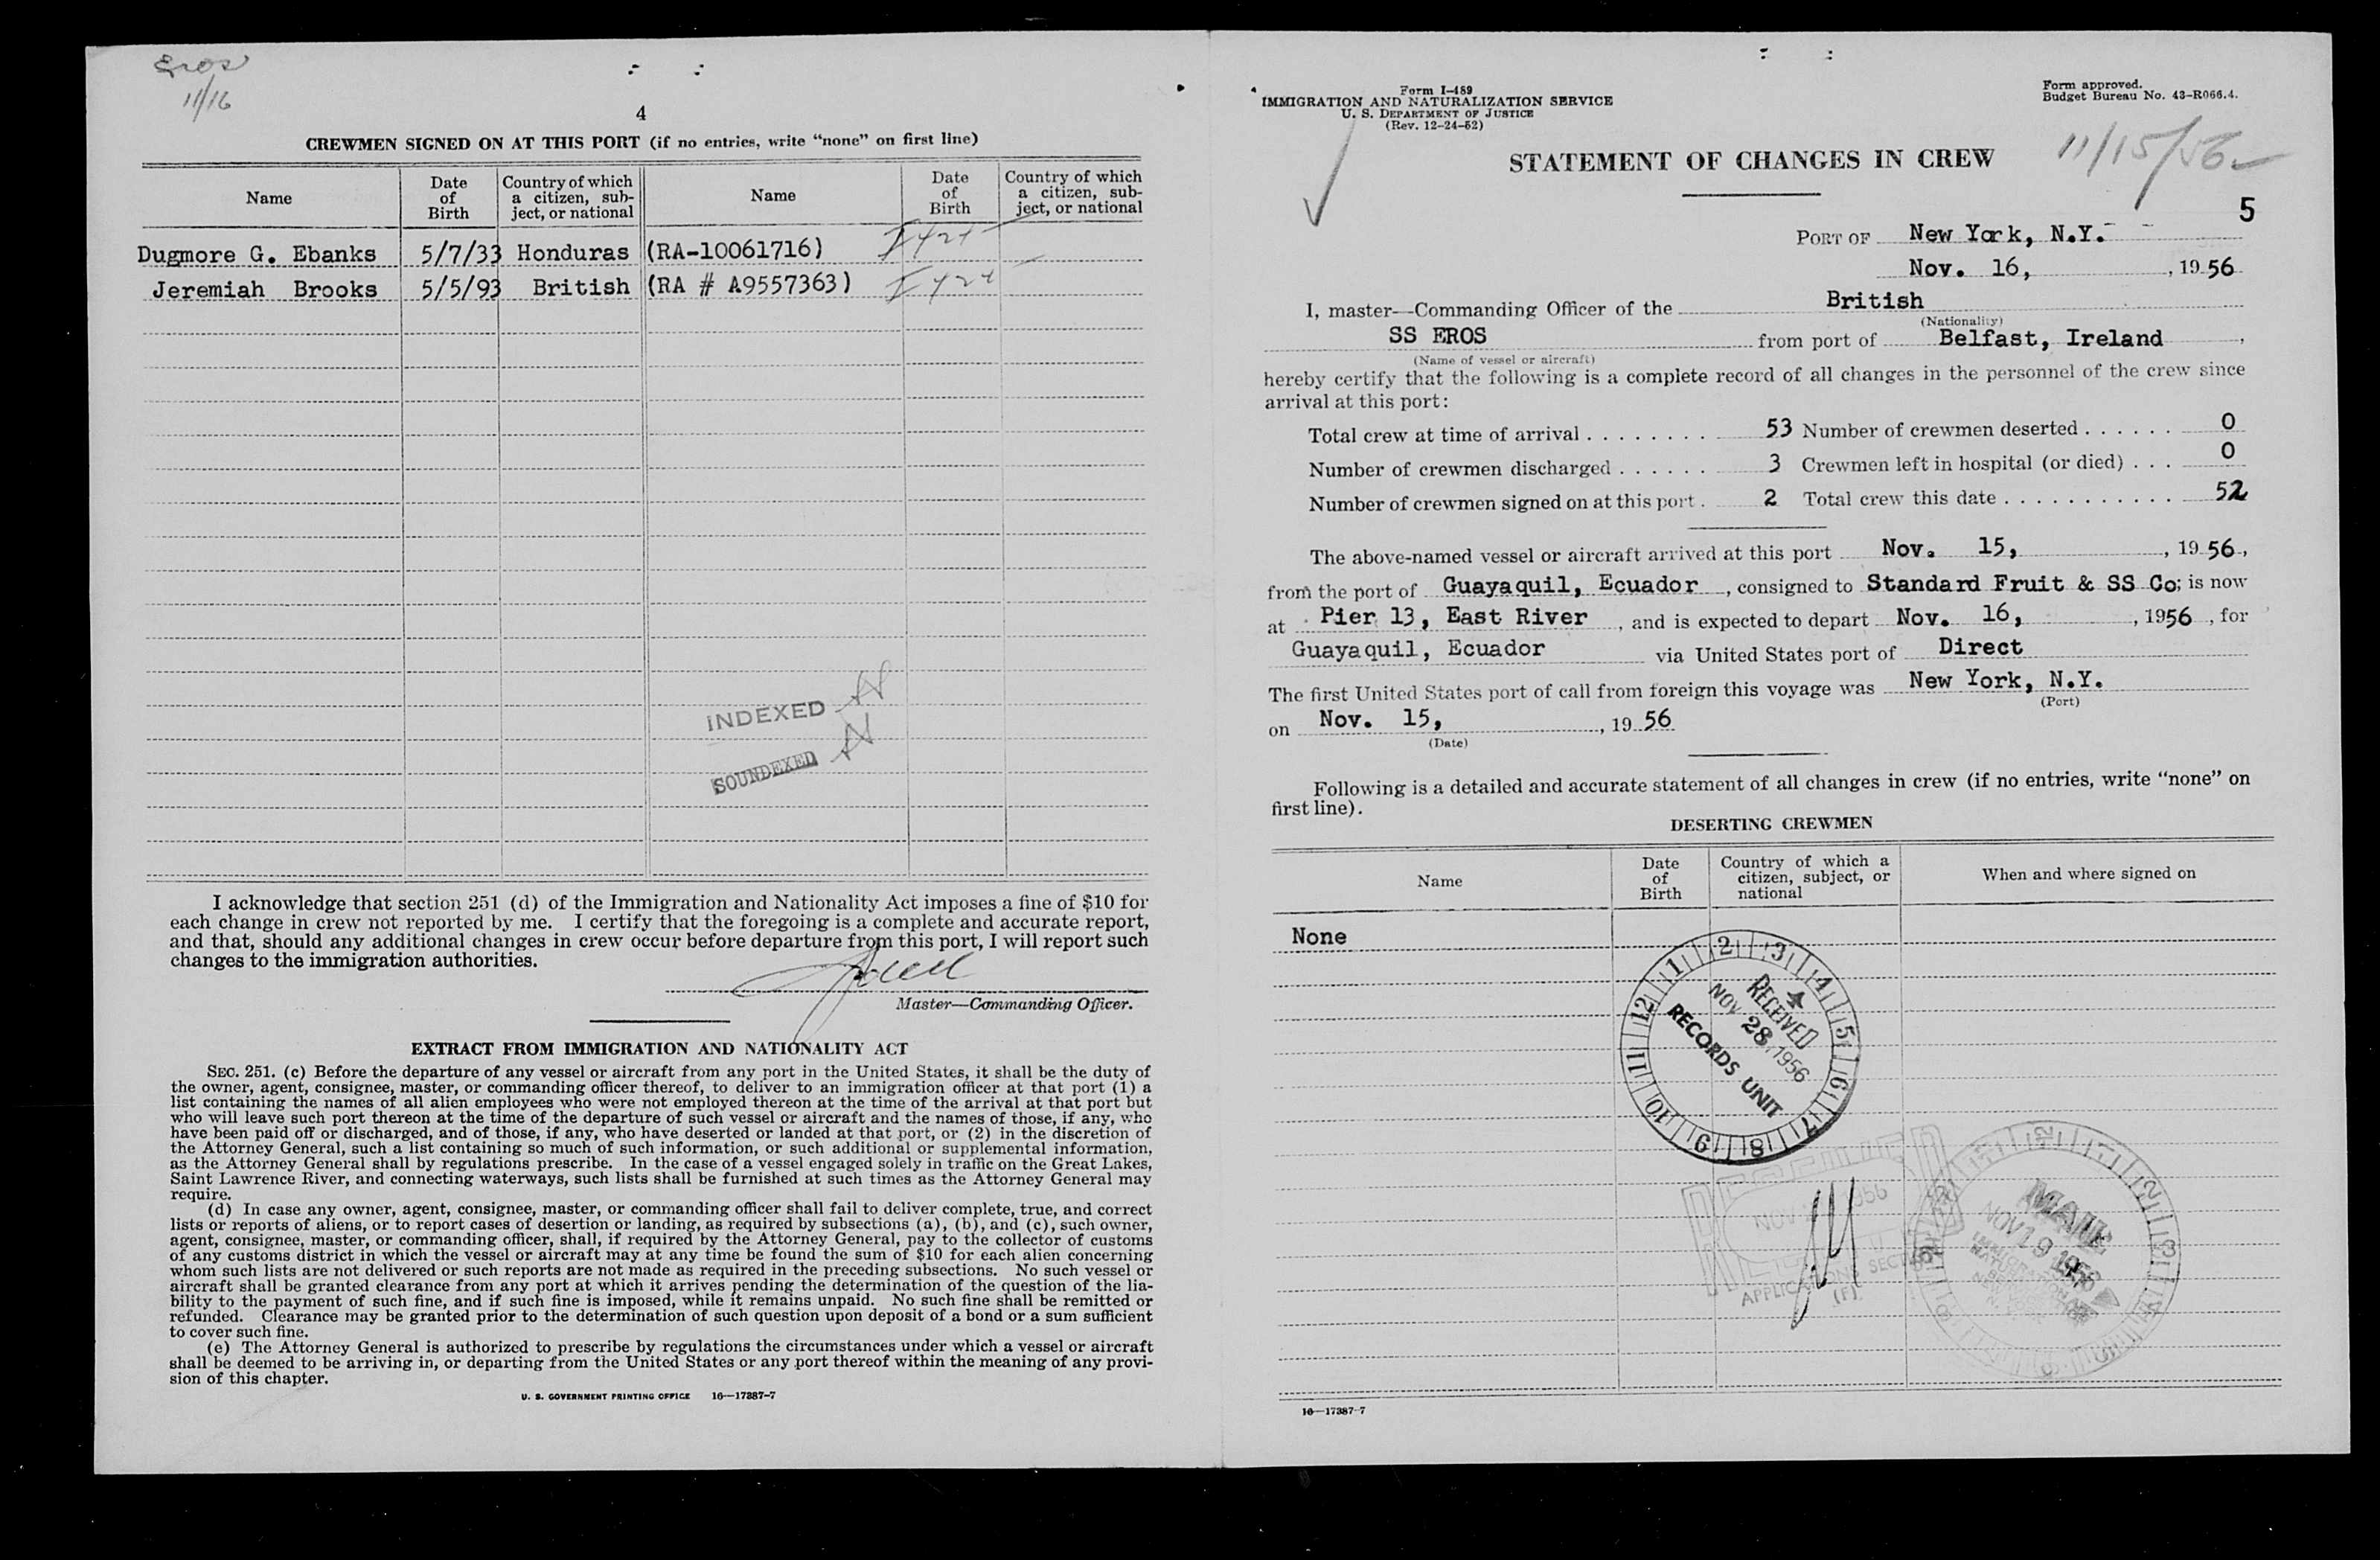 Eros
11/16
4
CREWMEN SIGNED ON AT THIS PORT (if no entries, write "none" on first line)
Name
Date of Birth
Country of which a citizen, sub-ject, or national
Name
Date of Birth
Country of which a citizen, sub-ject, or national
Dugmore G. Ebanks 5/7/33 Honduras (RA-10061716)
Jeremiah Brooks 5/5/93 British (RA # A9557363)
INDEXED
SOUNDEXED
I acknowledge that section 251 (d) of the Immigration and Nationality Act imposes a fine of $10 for
each change in crew not reported by me. I certify that the foregoing is a complete and accurate report,
and that, should any additional changes in crew occur before departure from this port, I will report such
changes to the immigration authorities.
Master—Commanding Officer.
EXTRACT FROM IMMIGRATION AND NATIONALITY ACT
SEC. 251. (c) Before the departure of any vessel or aircraft from any port in the United States, it shall be the duty of
the owner, agent, consignee, master, or commanding officer thereof, to deliver to an immigration officer at that port (1) a
list containing the names of all alien employees who were not employed thereon at the time of the arrival at that port but
who will leave such port thereon at the time of the departure of such vessel or aircraft and the names of those, if any, who
have been paid off or discharged, and of those, if any, who have deserted or landed at that port, or (2) in the discretion of
the Attorney General, such a list containing so much of such information, or such additional or supplemental information,
as the Attorney General shall by regulations prescribe. In the case of a vessel engaged solely in traffic on the Great Lakes,
Saint Lawrence River, and connecting waterways, such lists shall be furnished at such times as the Attorney General may
require.
(d) In case any owner, agent, consignee, master, or commanding officer shall fail to deliver complete, true, and correct
lists or reports of aliens, or to report cases of desertion or landing, as required by subsections (a), (b), and (c), such owner,
agent, consignee, master, or commanding officer, shall, if required by the Attorney General, pay to the collector of customs
of any customs district in which the vessel or aircraft may at any time be found the sum of $10 for each alien concerning
whom such lists are not delivered or such reports are not made as required in the preceding subsections. No such vessel or
aircraft shall be granted clearance from any port at which it arrives pending the determination of the question of the lia-
bility to the payment of such fine, and if such fine is imposed, while it remains unpaid. No such fine shall be remitted or
refunded. Clearance may be granted prior to the determination of such question upon deposit of a bond or a sum sufficient
to cover such fine.
(e) The Attorney General is authorized to prescribe by regulations the circumstances under which a vessel or aircraft
shall be deemed to be arriving in, or departing from the United States or any port thereof within the meaning of any provi-
sion of this chapter.
U. S. GOVERNMENT PRINTING OFFICE 16—17387-7
Form I-489
IMMIGRATION AND NATURALIZATION SERVICE
U. S. DEPARTMENT OF JUSTICE
(Rev. 12-24-52)
Form approved.
Budget Bureau No. 43-R066.4.
11/15/56
STATEMENT OF CHANGES IN CREW
5
PORT OF New York, N.Y.
Nov. 16, , 1956
I, master—Commanding Officer of the British
(Nationality)
SS EROS from port of Belfast, Ireland ,
(Name of vessel or aircraft)
hereby certify that the following is a complete record of all changes in the personnel of the crew since
arrival at this port:
Total crew at time of arrival . . . . . . . . 53 Number of crewmen deserted . . . . . . 0
Number of crewmen discharged . . . . . . 3 Crewmen left in hospital (or died) . . . 0
Number of crewmen signed on at this port . 2 Total crew this date . . . . . . . . . . . 52
The above-named vessel or aircraft arrived at this port Nov. 15, , 1956,
from the port of Guayaquil, Ecuador , consigned to Standard Fruit & SS Co; is now
at Pier 13, East River , and is expected to depart Nov. 16, , 1956 , for
Guayaquil, Ecuador via United States port of Direct
The first United States port of call from foreign this voyage was New York, N.Y.
(Port)
on Nov. 15, , 1956
(Date)
Following is a detailed and accurate statement of all changes in crew (if no entries, write "none" on
first line).
DESERTING CREWMEN
Name
Date of Birth
Country of which a citizen, subject, or national
When and where signed on
None
1 2 3 4 5 6 7 8 9 10 11 12
RECEIVED
NOV 28 1956
RECORDS UNIT
NOV 1956
APPLICATIONS SECTION
(F)
MAIL
NOV 19 1956
16—17387-7